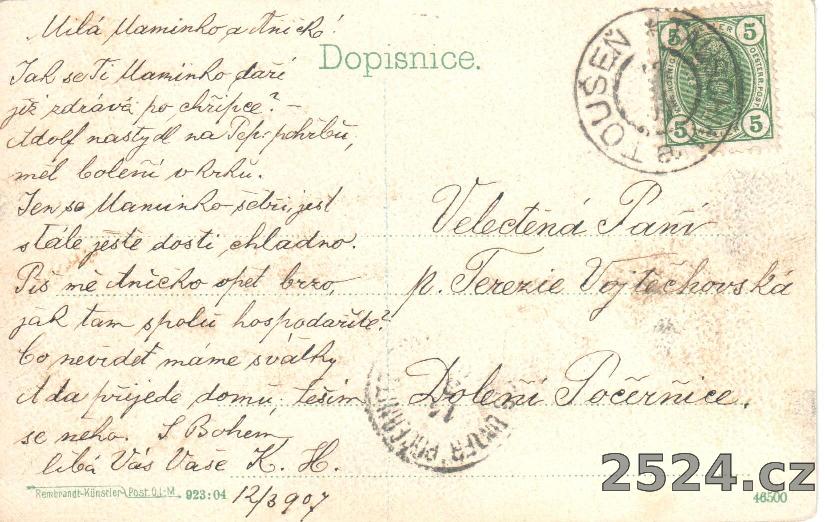 Milá Maminko a Aničko!
Dopisnice.
Jak se Ti Maminko daří
již zdráva po chřipce? –
Adolf nastydl na Pep: pohřbu,
měl bolení v krku.
Jen se Maminko šetři, jest
stále ještě dosti chladno.
Piš mě Aničko opět brzo,
jak tam spolu hospodaříte?
Co nevidět máme svátky
A da přijede domů, těším
se naho. S Bohem
líbá Vás Vaše K. H.
12/3 907
Velectěná Paní
p. Terezie Vojtěchovská
Dolení Počernice.
TOUŠEŇ
5 5
5 5
UNTER
Rembrandt-Künstler-Post. D.i.M. 923:04
46500
2524.cz